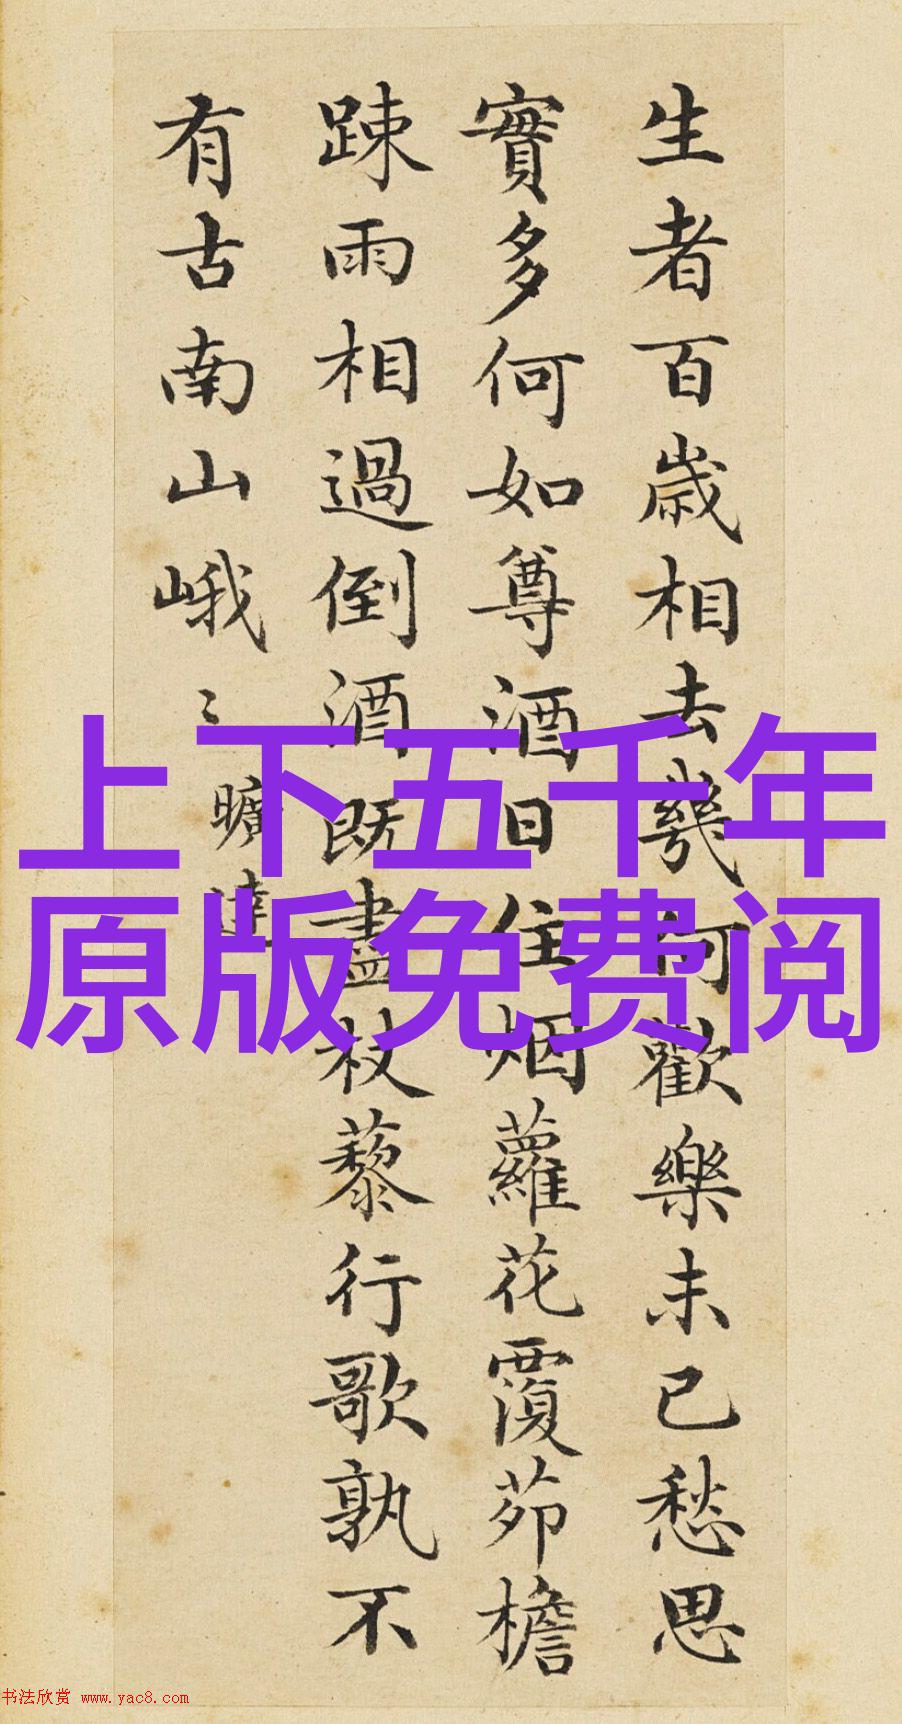 生者百歲相去幾何歡樂未已愁思
實多何如尊酒日往烟蘿花覆茆檐
踈雨相過倒酒既盡杖藜行歌孰不
有古南山峨〻曠達
上下五千年
原版免费阅
书法欣赏 www.yac8.com